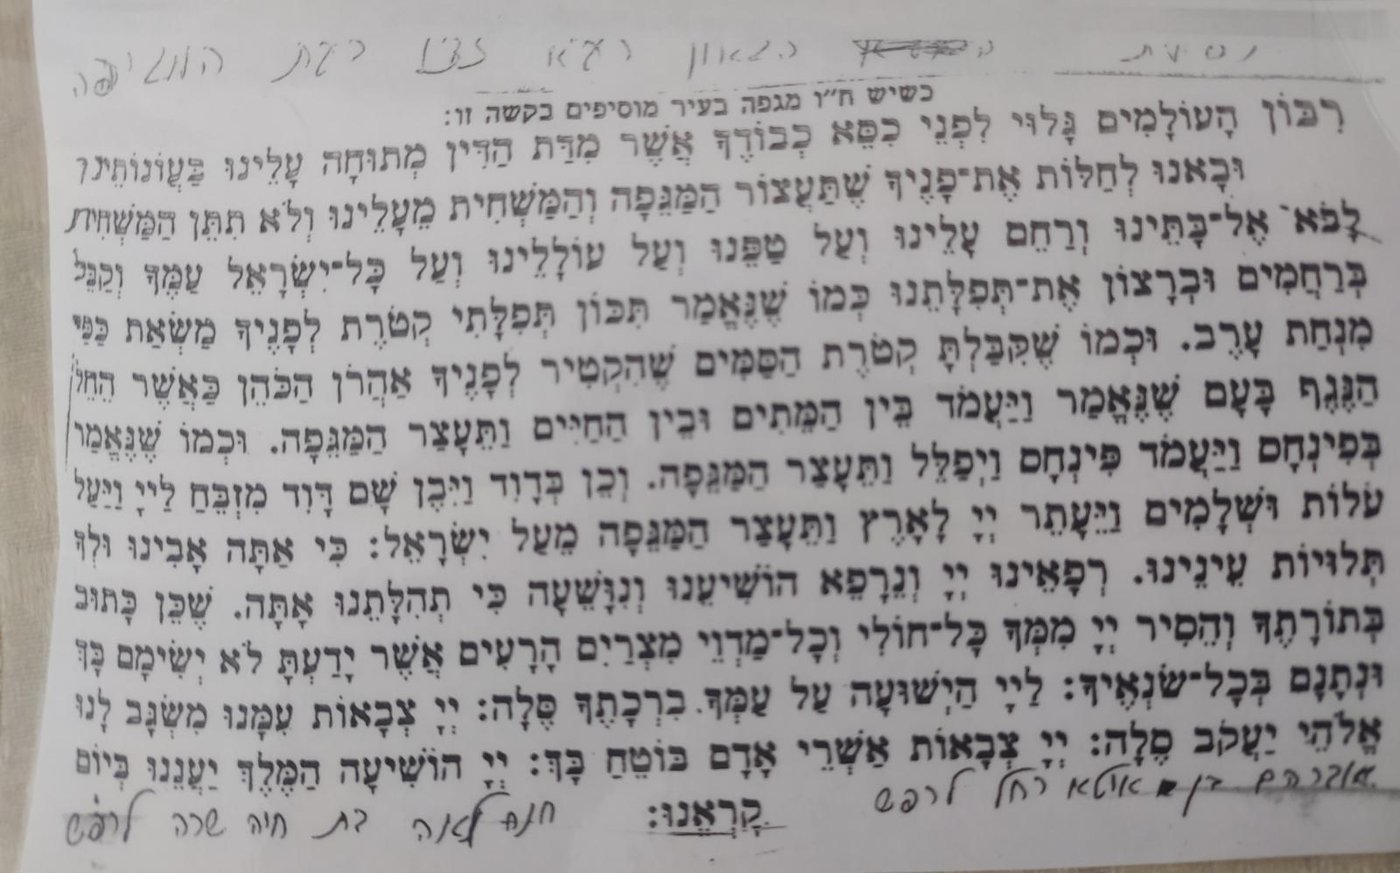 נסיעת הגאון רעק״א זצ״ל בעת המגיפה
כשיש ח״ו מגפה בעיר מוסיפים בקשה זו:
רִבּוֹן הָעוֹלָמִים גָּלוּי לִפְנֵי כִסֵּא כְבוֹדֶךָ אֲשֶׁר מִדַּת הַדִּין מְתוּחָה עָלֵינוּ בַּעֲוֹנוֹתֵינוּ
וּבָאנוּ לְחַלּוֹת אֶת־פָּנֶיךָ שֶׁתַּעֲצוֹר הַמַּגֵּפָה וְהַמַּשְׁחִית מֵעָלֵינוּ וְלֹא תִתֵּן הַמַּשְׁחִית
לָבֹא אֶל־בָּתֵּינוּ וְרַחֵם עָלֵינוּ וְעַל טַפֵּנוּ וְעַל עוֹלָלֵינוּ וְעַל כָּל־יִשְׂרָאֵל עַמֶּךָ וְקַבֵּל
בְּרַחֲמִים וּבְרָצוֹן אֶת־תְּפִלָּתֵנוּ כְּמוֹ שֶׁנֶּאֱמַר תִּכּוֹן תְּפִלָּתִי קְטֹרֶת לְפָנֶיךָ מַשְׂאַת כַּפַּי
מִנְחַת עָרֶב. וּכְמוֹ שֶׁקִּבַּלְתָּ קְטֹרֶת הַסַּמִּים שֶׁהִקְטִיר לְפָנֶיךָ אַהֲרֹן הַכֹּהֵן כַּאֲשֶׁר הֵחֵל
הַנֶּגֶף בָּעָם שֶׁנֶּאֱמַר וַיַּעֲמֹד בֵּין הַמֵּתִים וּבֵין הַחַיִּים וַתֵּעָצַר הַמַּגֵּפָה. וּכְמוֹ שֶׁנֶּאֱמַר
בְּפִינְחָם וַיַּעֲמֹד פִּינְחָם וַיְפַלֵּל וַתֵּעָצַר הַמַּגֵּפָה. וְכֵן בְּדָוִד וַיִּבֶן שָׁם דָּוִד מִזְבֵּחַ לַיְיָ וַיַּעַל
עֹלוֹת וּשְׁלָמִים וַיֵּעָתֵר יְיָ לָאָרֶץ וַתֵּעָצַר הַמַּגֵּפָה מֵעַל יִשְׂרָאֵל: כִּי אַתָּה אָבִינוּ וּלְךָ
תְּלוּיוֹת עֵינֵינוּ. רְפָאֵינוּ יְיָ וְנֵרָפֵא הוֹשִׁיעֵנוּ וְנִוָּשֵׁעָה כִּי תְהִלָּתֵנוּ אָתָּה. שֶׁכֵּן כָּתוּב
בְּתוֹרָתֶךָ וְהֵסִיר יְיָ מִמְּךָ כָּל־חוֹלִי וְכָל־מַדְוֵי מִצְרַיִם הָרָעִים אֲשֶׁר יָדַעְתָּ לֹא יְשִׂימָם בָּךְ
וּנְתָנָם בְּכָל־שׂנְאֶיךָ: לַיְיָ הַיְשׁוּעָה עַל עַמְּךָ בִרְכָתֶךָ סֶּלָה: יְיָ צְבָאוֹת עִמָּנוּ מִשְׂגָּב לָנוּ
אֱלֹהֵי יַעֲקֹב סֶלָה: יְיָ צְבָאוֹת אַשְׁרֵי אָדָם בּוֹטֵחַ בָּךְ: יְיָ הוֹשִׁיעָה הַמֶּלֶךְ יַעֲנֵנוּ בְיוֹם
קָרְאֵנוּ:
אברהם בן איטא רחל לרפש
חנה לאה בת חיה שרה לרפש